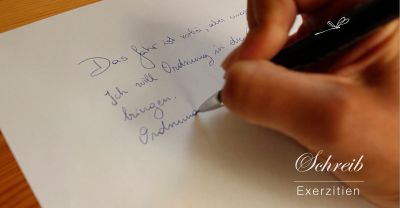 Das Jahr ist
Ich will Ordnung in
bringen.
Ordnung
Schreib
Exerzitien